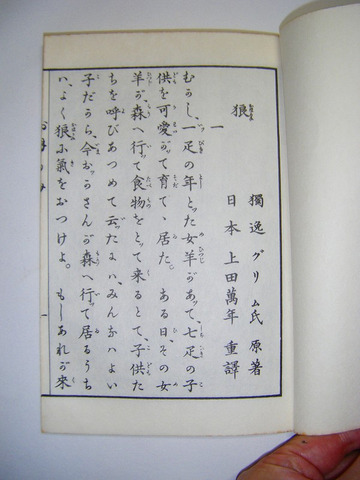 獨逸 グリム氏 原著
日本 上田萬年 重譯
狼
一
むかし、一疋の年とッた女羊があッて、七疋の子
供を可愛がッて育てゝ居た。ある日、その女
羊が、森へ行ッて食物をとッて来るとて、子供た
ちを呼びあつめて云ッたにハ、みんなハよい
子だから、今おッかさんが森へ行ッて居るうち
ハ、よく狼に氣をおつけよ。もしあれが來
一